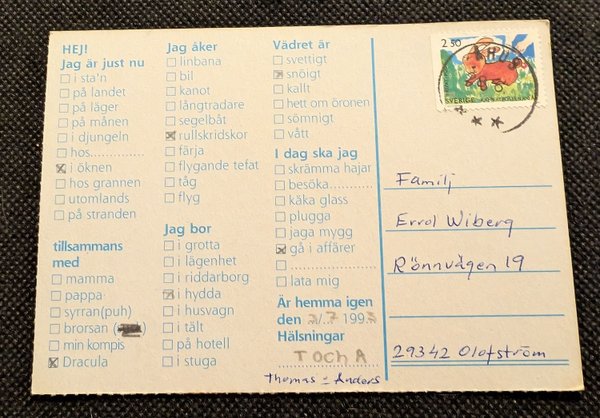 HEJ!
Jag är just nu
i sta'n
på landet
på läger
på månen
i djungeln
hos..............
x i öknen
hos grannen
utomlands
på stranden
tillsammans
med
mamma
pappa
syrran(puh)
brorsan
min kompis
x Dracula
Jag åker
linbana
bil
kanot
långtradare
segelbåt
x rullskridskor
färja
flygande tefat
tåg
flyg
Jag bor
i grotta
i lägenhet
i riddarborg
x i hydda
i husvagn
i tält
på hotell
i stuga
Vädret är
svettigt
x snöigt
kallt
hett om öronen
sömnigt
vått
I dag ska jag
skrämma hajar
besöka......
käka glass
plugga
jaga mygg
x gå i affärer
..................
lata mig
Är hemma igen
den /7 1993
Hälsningar
T och A
Thomas = Anders
2 50
SVERIGE
ÅHUS
Familj
Errol Wiberg
Rönnvägen 19
29342 Olofström